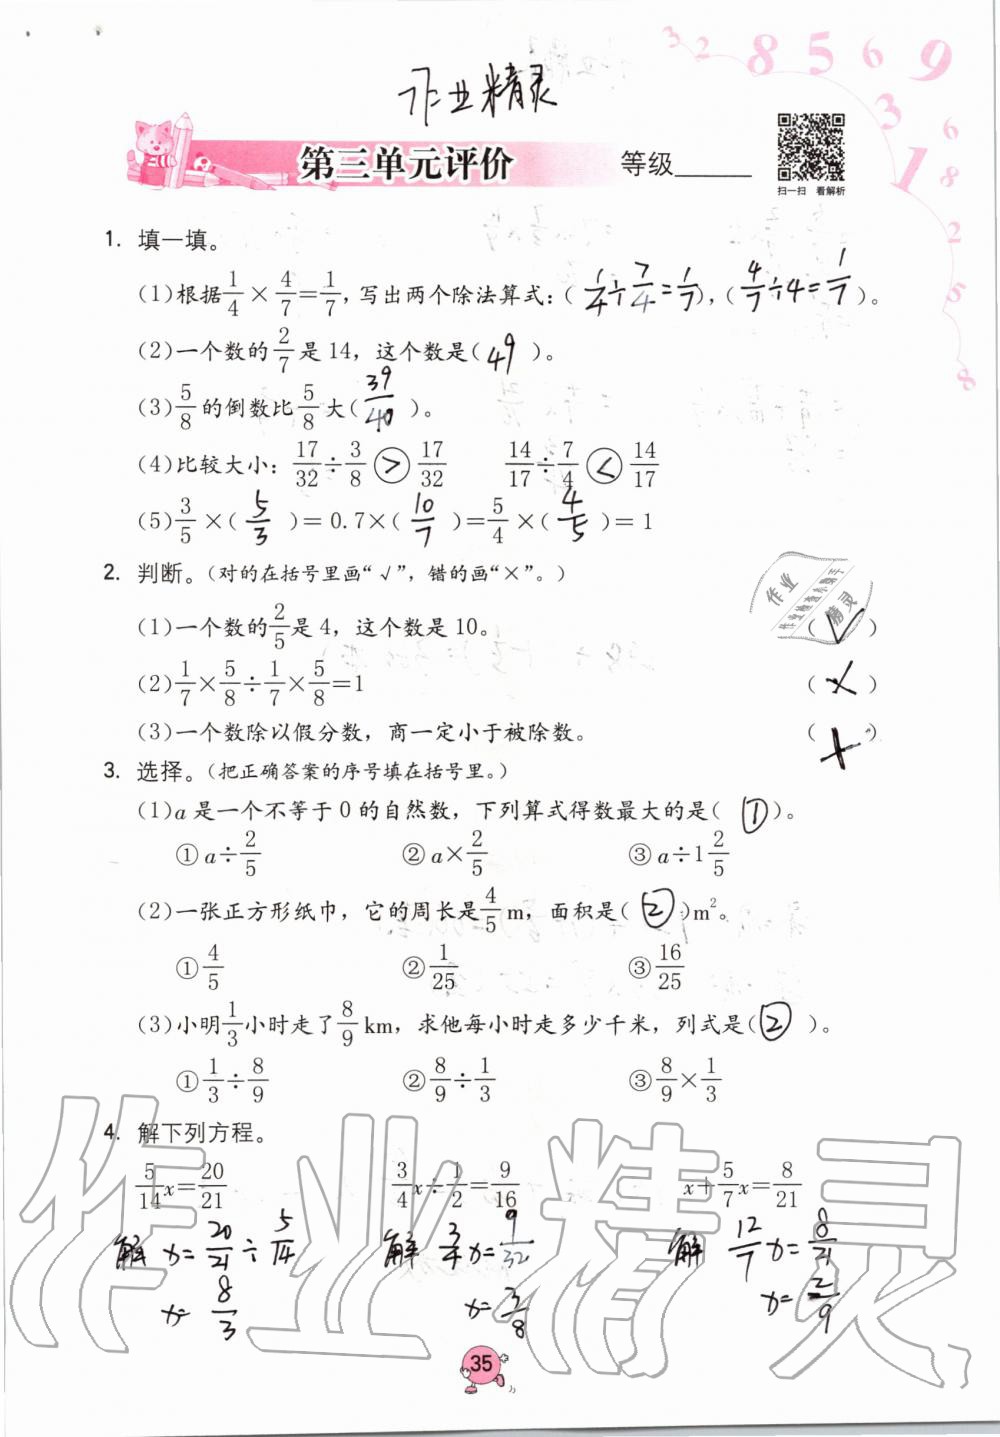 3 2 8 5 6 9 3 1 6 8 2 5 8
作业精灵
第三单元评价 等级______
扫一扫 看解析
1. 填一填。
(1)根据1/4×4/7=1/7,写出两个除法算式:( 1/4÷7/4=1/7 ),( 4/7÷4=1/7 )。
(2)一个数的2/7是14,这个数是( 49 )。
(3)5/8的倒数比5/8大( 39/40 )。
(4)比较大小:17/32÷3/8 > 17/32 14/17÷7/4 < 14/17
(5)3/5×( 5/3 )=0.7×( 10/7 )=5/4×( 4/5 )=1
2. 判断。(对的在括号里画“√”,错的画“×”。)
(1)一个数的2/5是4,这个数是10。 ( √ )
(2)1/7×5/8÷1/7×5/8=1 ( × )
(3)一个数除以假分数,商一定小于被除数。 ( × )
3. 选择。(把正确答案的序号填在括号里。)
(1)a是一个不等于0的自然数,下列算式得数最大的是( ① )。
①a÷2/5 ②a×2/5 ③a÷1 2/5
(2)一张正方形纸巾,它的周长是4/5 m,面积是( ② )m²。
①4/5 ②1/25 ③16/25
(3)小明1/3小时走了8/9 km,求他每小时走多少千米,列式是( ② )。
①1/3÷8/9 ②8/9÷1/3 ③8/9×1/3
4. 解下列方程。
5/14x=20/21 3/4x÷1/2=9/16 x+5/7x=8/21
解 x=20/21÷5/14 解 3/4x=9/32 解 12/7x=8/21
x=8/3 x=3/8 x=2/9
35
作业精灵